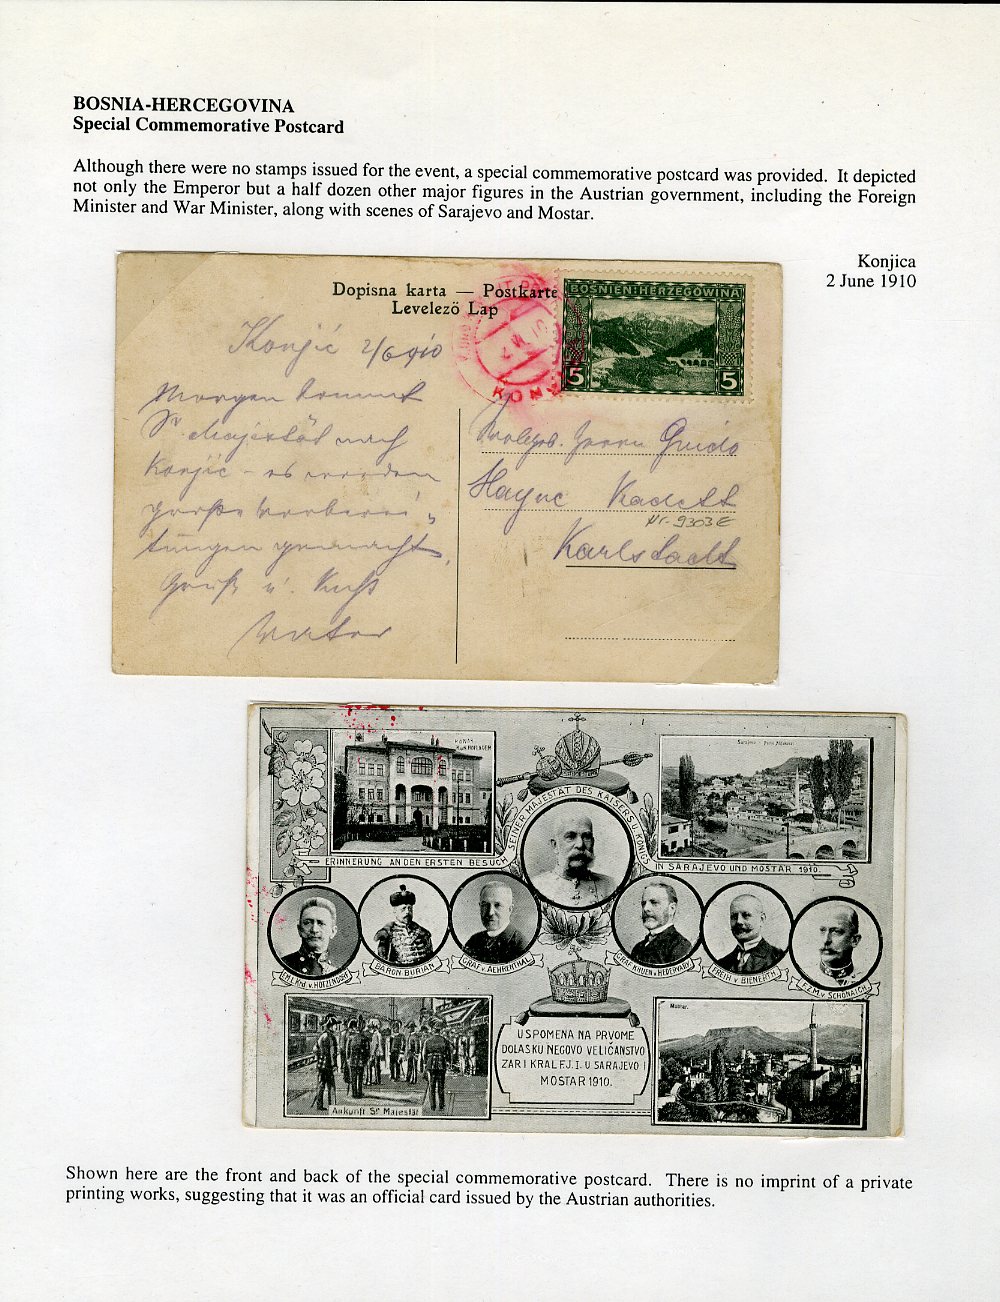 BOSNIA-HERCEGOVINA
Special Commemorative Postcard
Although there were no stamps issued for the event, a special commemorative postcard was provided. It depicted
not only the Emperor but a half dozen other major figures in the Austrian government, including the Foreign
Minister and War Minister, along with scenes of Sarajevo and Mostar.
Konjica
2 June 1910
Dopisna karta — Postkarte
Levelező Lap
BOSNIEN-HERZEGOWINA
5 5
KON
Konjić 2/6 910
Morgen kommt
Sr Majestät nach
Konjić - es werden
große Vorberei-
tungen gemacht.
Gruß u. Kuß
Vater
Herrn Guido
Kadett
Nr. 9303E
Karlstadt
KONAK
Sarajevo
ERINNERUNG AN DEN ERSTEN BESUCH
SEINER MAJESTÄT DES KAISERS U. KÖNIGS
IN SARAJEVO UND MOSTAR 1910.
v. HÖTZENDORF
BARON BURIAN
GRAF v. AEHRENTHAL
GRAF KHUEN v. HEDERVARY
FREIH v. BIENERTH
F.Z.M. v. SCHÖNAICH
Ankunft Sr Majestät
USPOMENA NA PRVOME
DOLASKU NEGOVO VELIČANSTVO
ZAR I KRAL F. J. I. U SARAJEVO I
MOSTAR 1910.
Mostar.
Shown here are the front and back of the special commemorative postcard. There is no imprint of a private
printing works, suggesting that it was an official card issued by the Austrian authorities.